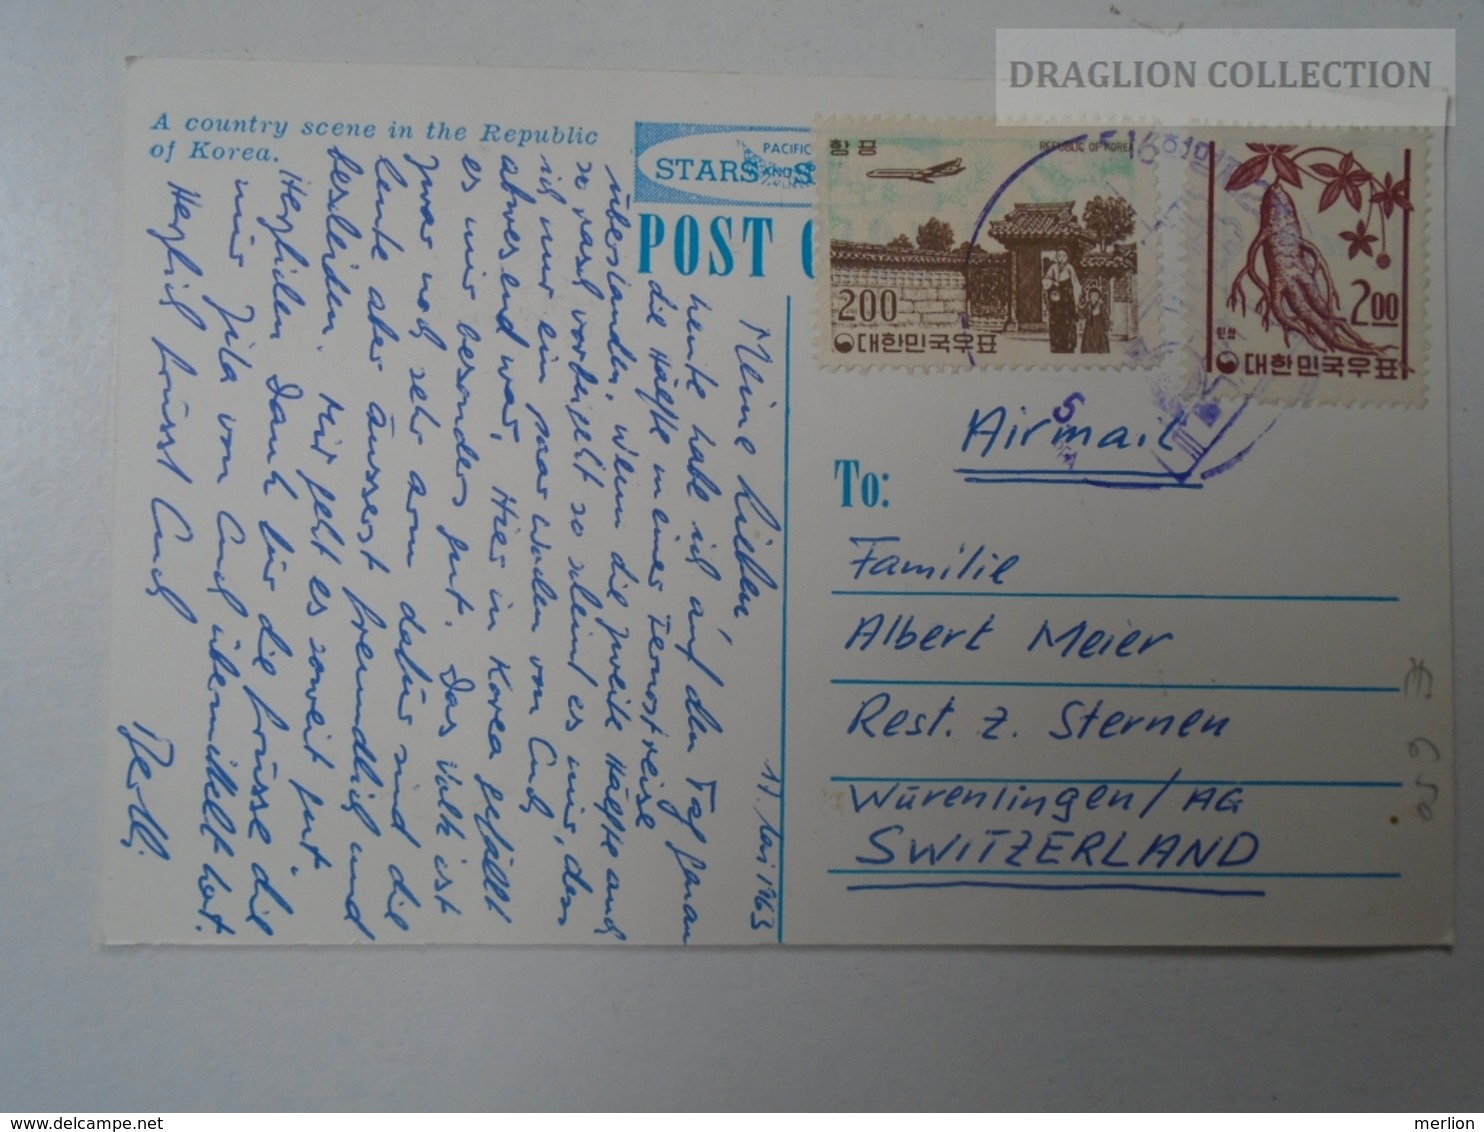 DRAGLION COLLECTION
A country scene in the Republic
of Korea.
PACIFIC
STARS AND S
POST C
항공
REPUBLIC OF KOREA
200
대한민국우표
2.00
인삼
대한민국우표
Airmail
To:
Familie
Albert Meier
Rest. z. Sternen
Würenlingen/AG
SWITZERLAND
11. Mai 1963
Meine Lieben,
heute habe ich auf den Tag genau
die Hälfte meiner Fernostreise
überstanden. Wenn die zweite Hälfte auch
so rasch vorbeigeht so scheint es mir, dass
ich nur ein paar Wochen von Euch
abwesend war. Hier in Korea gefällt
es mir besonders gut. Das Volk ist
zwar noch sehr arm dafür sind die
Leute aber äusserst freundlich und
bescheiden. Mir geht es soweit gut.
Herzlichen Dank für die Grüsse die
mir Zita von Euch übermittelt hat.
Herzlich grüsst Euch
merlion